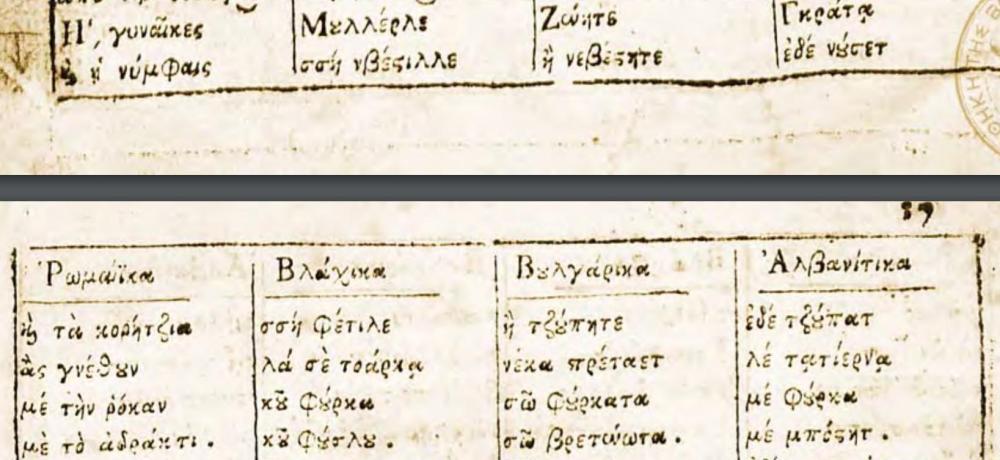 Ἡ, γυναῖκες Μȣλλέρλε Ζώητέ Γκράτᾳ
ϗ ἡ νύμφαις σσή νβέςιλλε ἢ νεβέςητε ἐδέ νȣσετ
Ῥωμαίϊκα Βλάχικα Βȣλγάρικα Ἀλβανίτικα
ϗ τὰ κορήτζια σσή Φέτιλε ἢ τζȣ́πητε ἐδέ τζȣ́πατ
ἂς γνέθȣν λά σὲ τοάρκα νέκα πρέταετ λέ τᾳτίερνᾳ
μέ τὴν ῥόκαν κȣ̃ Φȣ́ρκα σῶ Φȣ́ρκατα μέ Φȣ́ρκα
μέ τὸ ἀδράκτι. κȣ̃ Φȣ́σλȣ. σῶ βρετώωτα. μέ μπόςητ.